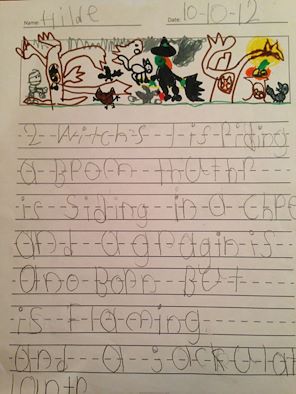 Name: Hilde Date: 10-10-12
2 Witchs 1 is Riding
a BROOM anuthr
is Siding in a ChRe
and a gragin is
ano Boan But
is Flaming
and a jackulat
lantr